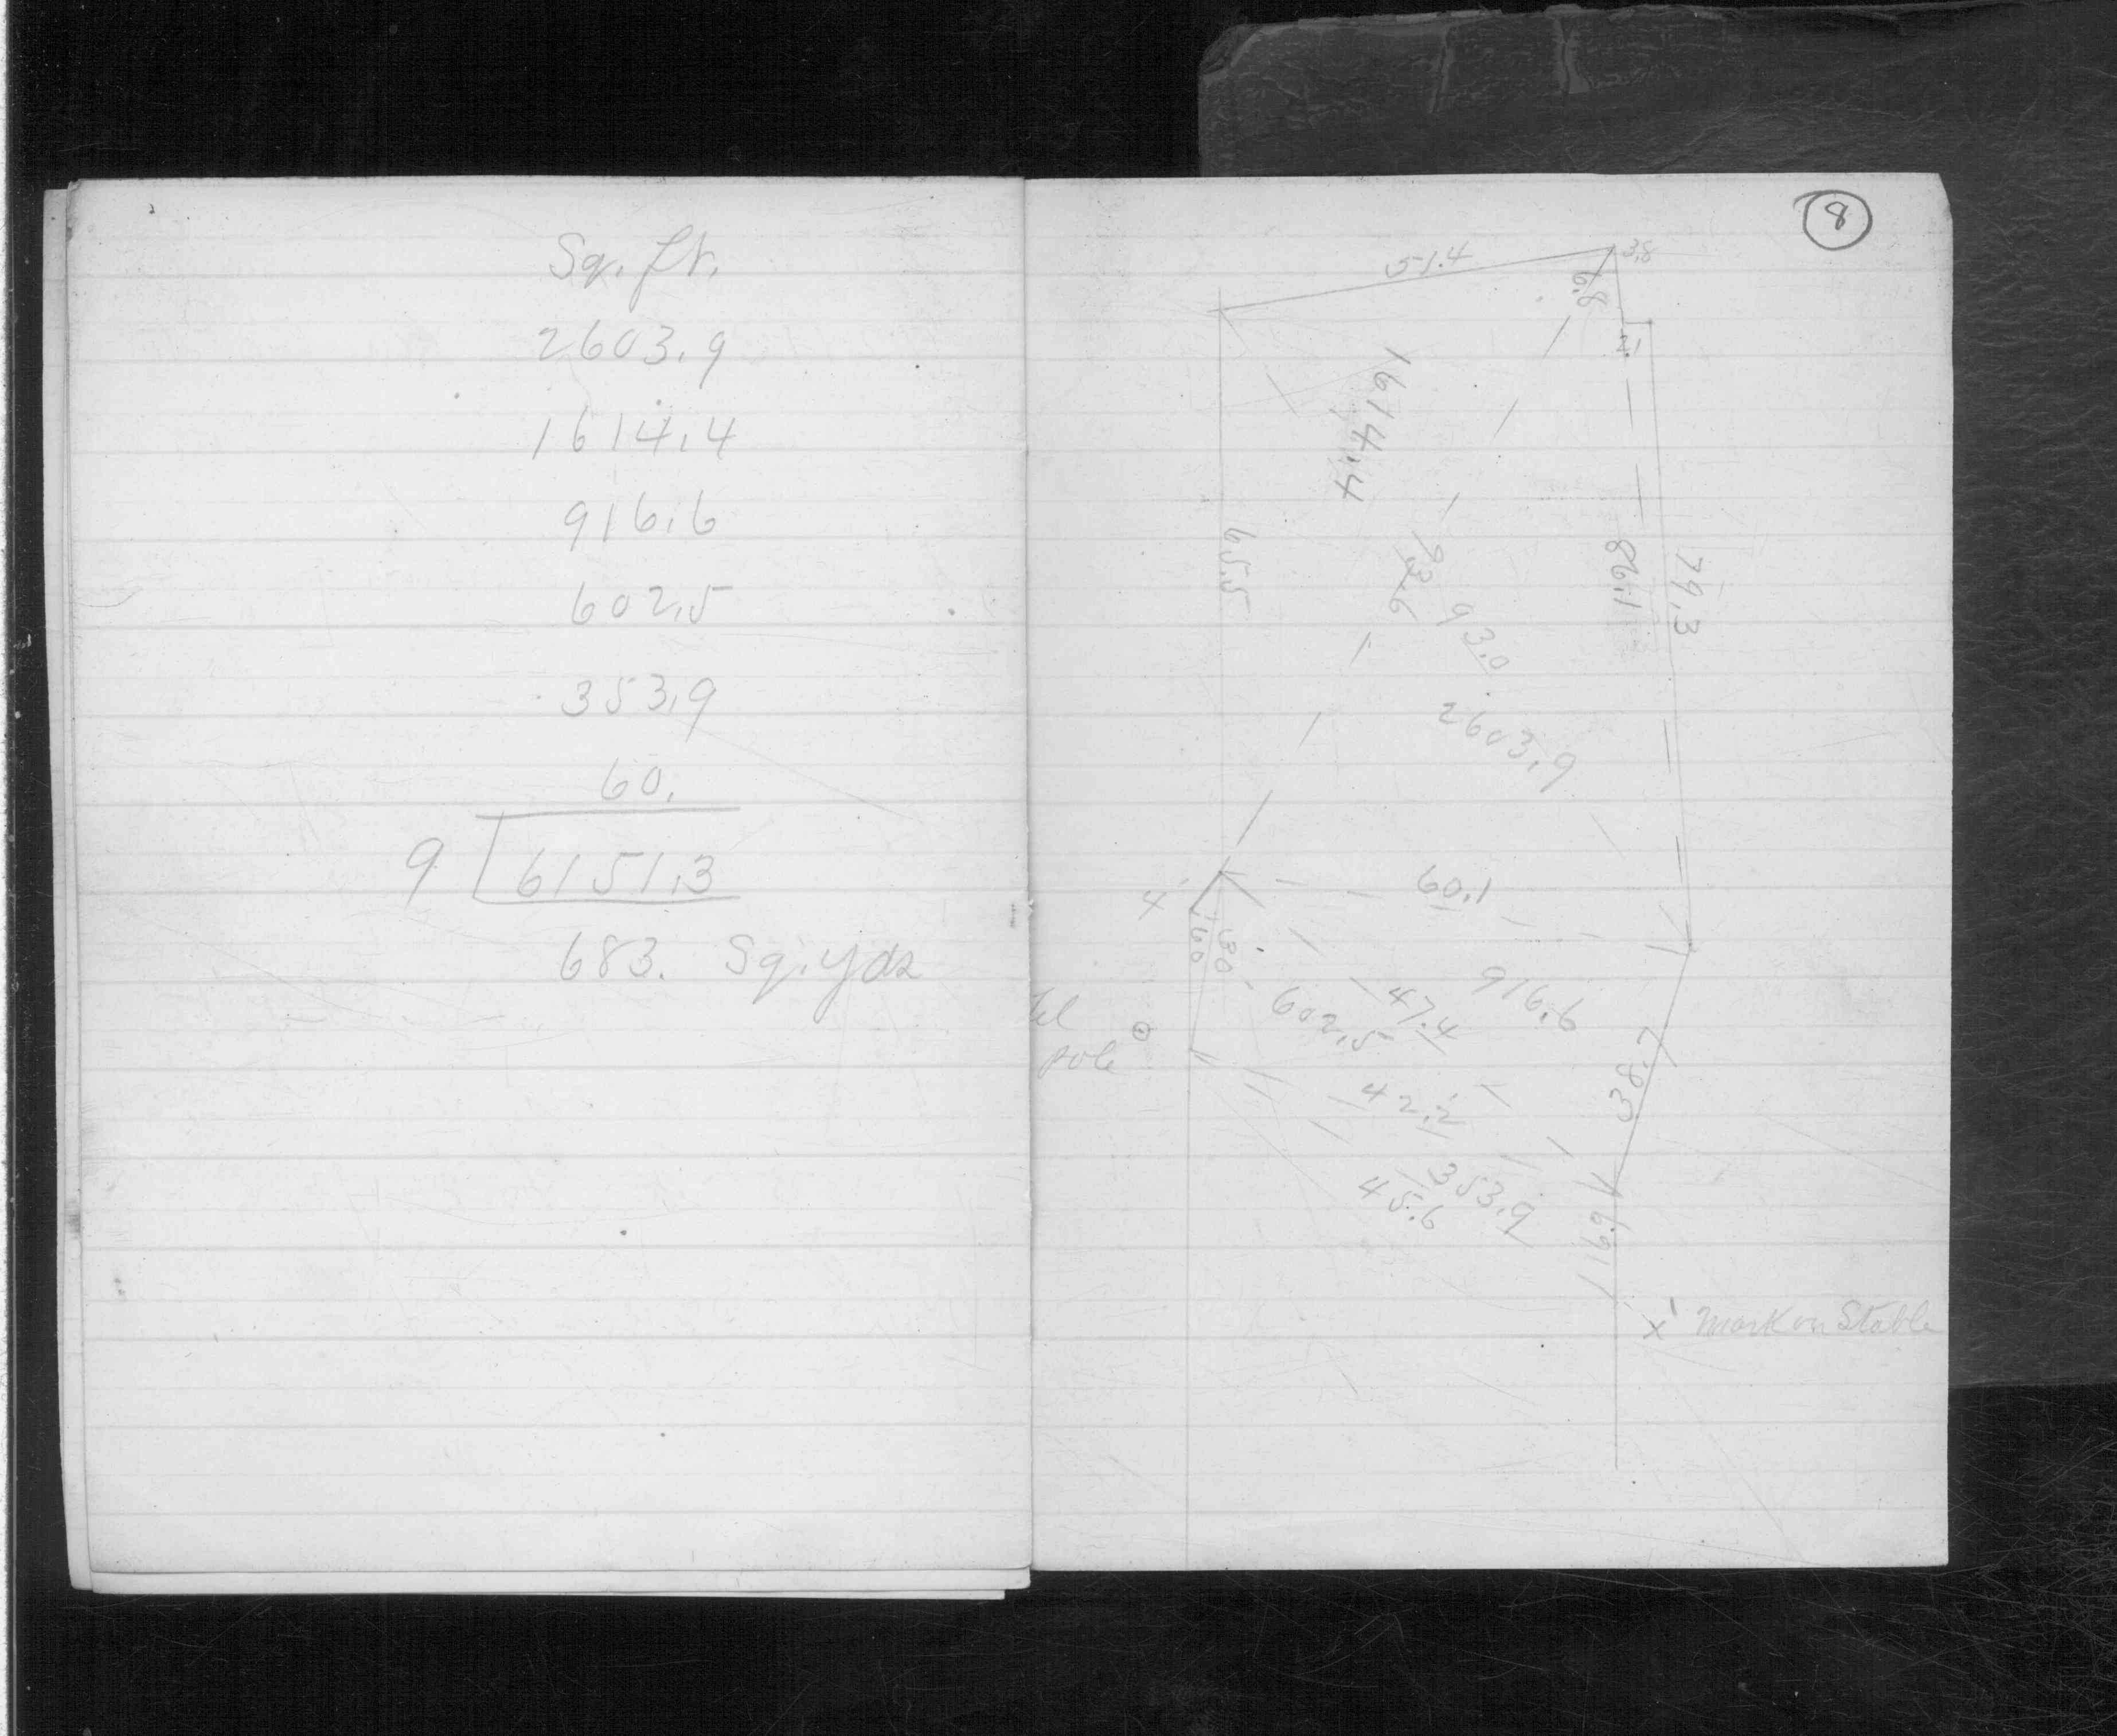 Sq. ft.
2603.9
1614.4
916.6
602.5
353.9
60.
9 6151.3
683. Sq. yds
8
51.4
3.8
6.8
1614.4
65.5
93.0
86.1
79.3
2603.9
4
60.1
916.6
47.4
602.5
pole
42.2
38.7
353.9
45.6
16.9
X Mark on Stable